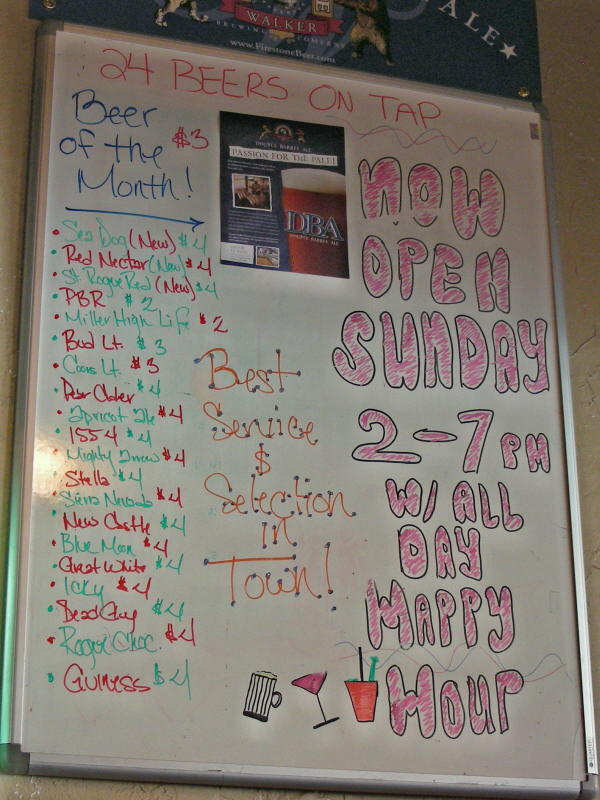 ALE
WALKER
BREWING COMPANY
www.FirestoneBeer.com
24 BEERS ON TAP
Beer
of the $3
Month!
Sea Dog (New) $4
Red Nectar (New) $4
St. Rogue Red (New) $4
PBR $2
Miller High Life $2
Bud Lt. $3
Coors Lt. $3
Pear Cider $4
Apricot Ale $4
1554 $4
Mighty Arrow $4
Stella $4
Sierra Nevada $4
New Castle $4
Blue Moon $4
Great White $4
Icky $4
Dead Guy $4
Rogue Choc. $4
Guiness $4
DOUBLE BARREL ALE
PASSION FOR THE PALE!
DBA
DOUBLE BARREL ALE
Best
Service
$
Selection
in
Town!
NOW
OPEN
SUNDAY
2-7 PM
W/ ALL
DAY
HAPPY
HOUR